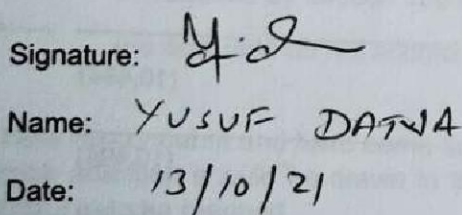 Signature:
Name: YUSUF DATWA
Date: 13/10/21